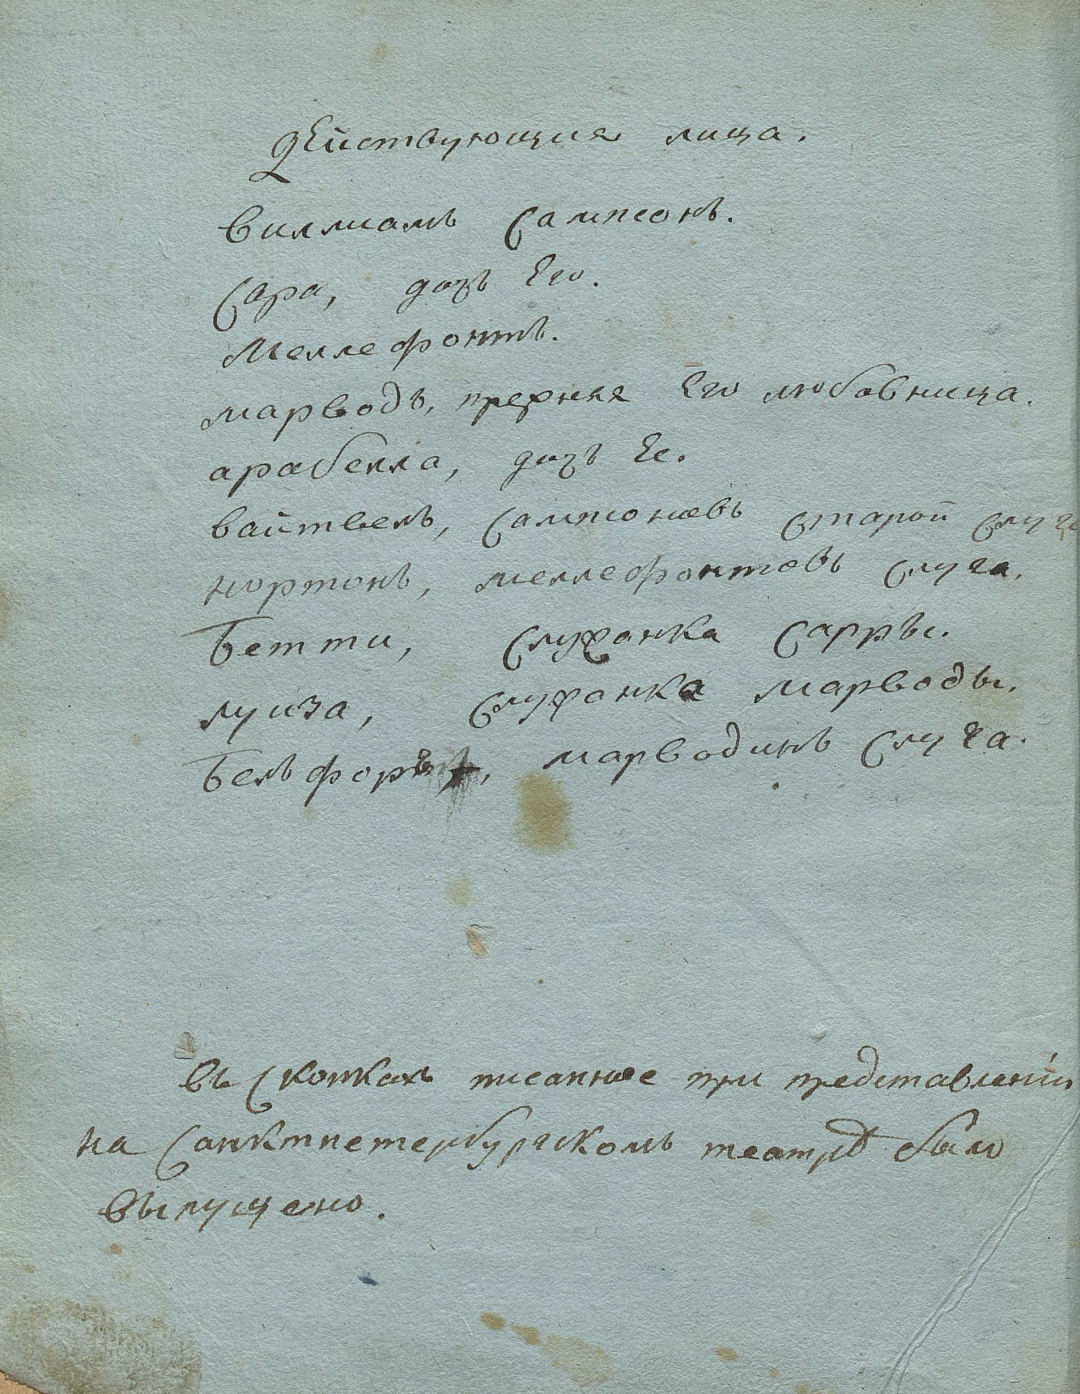 дѣйствующия лица.
виллиамъ сампсонъ.
сара, дочь Его.
Меллефонтъ.
марводъ, прежняя Его любовница.
арабелла, дочь Ее.
вайтвель, сампсоновъ старой слуга
нортонъ, меллефонтовъ слуга.
Бетти, служанка сарры.
луиза, служанка марводы.
Бельфоръ, марводинъ слуга.
въ скопкахъ писанное при представленіи
на санктпетербургскомъ театрѣ было
выпущено.